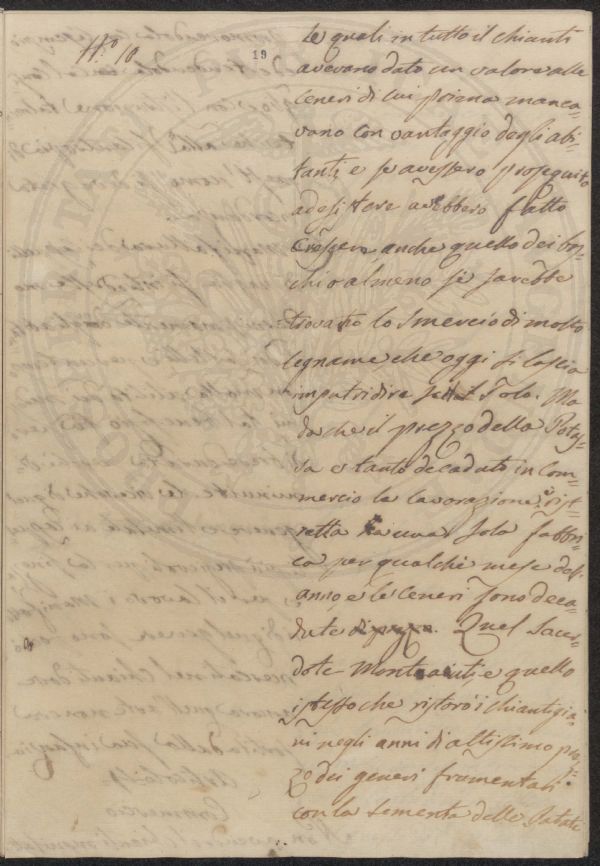 N.º 10
19
le quali in tutto il Chianti
avevano dato un valore alle
Ceneri di cui prima manca=
vano con vantaggio degli abi=
tanti e se avessero proseguito
ad esistere avrebbero fatto
crescere anche quello dei bos=
chi o almeno si sarebbe
trovato lo smercio di molto
legname che oggi si lascia
imputridire sul suolo. Ma
da che il prezzo della Potas=
sa è tanto decaduto in Com=
mercio la lavorazione è rist=
retta ad una sola fabbri=
ca per qualche mese dell'
anno, e le Ceneri sono deca=
dute di prezzo. Quel Sacer=
dote e quello
istesso che ristorò i Chiantigia=
ni negli anni di altissimo prez=
zo dei generi frumentati
con la sementa delle Patate